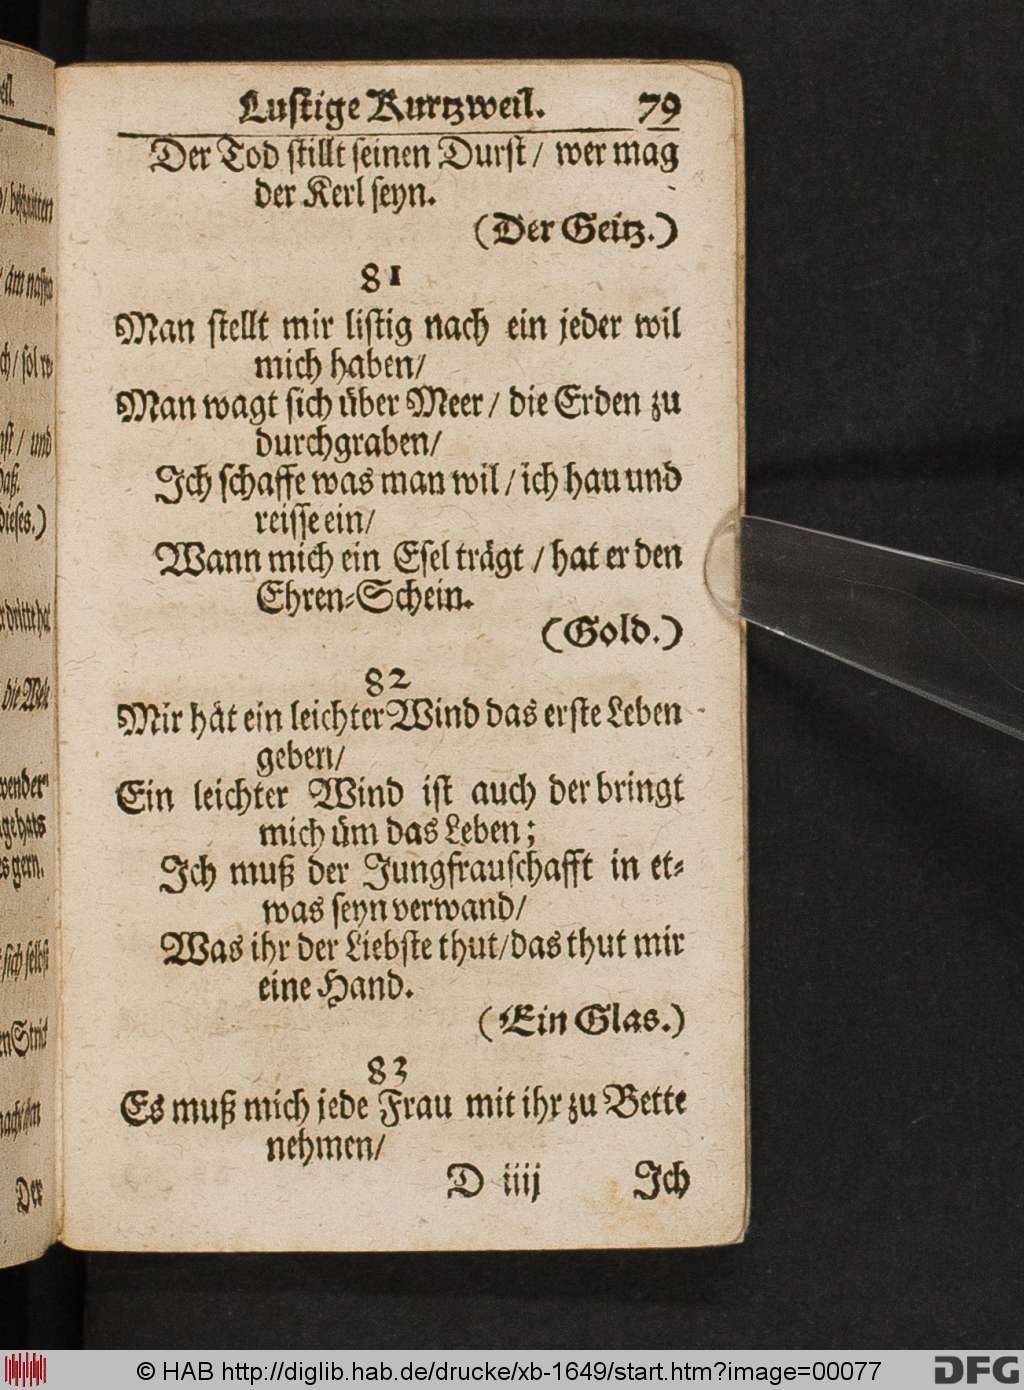 Lustige Kurtzweil. 79
Der Tod stillt seinen Durst / wer mag
der Kerl seyn.
(Der Geitz.)
81
Man stellt mir listig nach ein jeder wil
mich haben/
Man wagt sich über Meer / die Erden zu
durchgraben/
Ich schaffe was man wil / ich hau und
reisse ein/
Wann mich ein Esel trägt / hat er den
Ehren-Schein.
(Gold.)
82
Mir hat ein leichter Wind das erste Leben
geben/
Ein leichter Wind ist auch der bringt
mich üm das Leben;
Ich muß der Jungfrauschafft in et-
was seyn verwand/
Was ihr der Liebste thut/das thut mir
eine Hand.
(Ein Glas.)
83
Es muß mich jede Frau mit ihr zu Bette
nehmen/
D iiij Ich
dieses.)
die
sich selbst
Der
© HAB http://diglib.hab.de/drucke/xb-1649/start.htm?image=00077
DFG